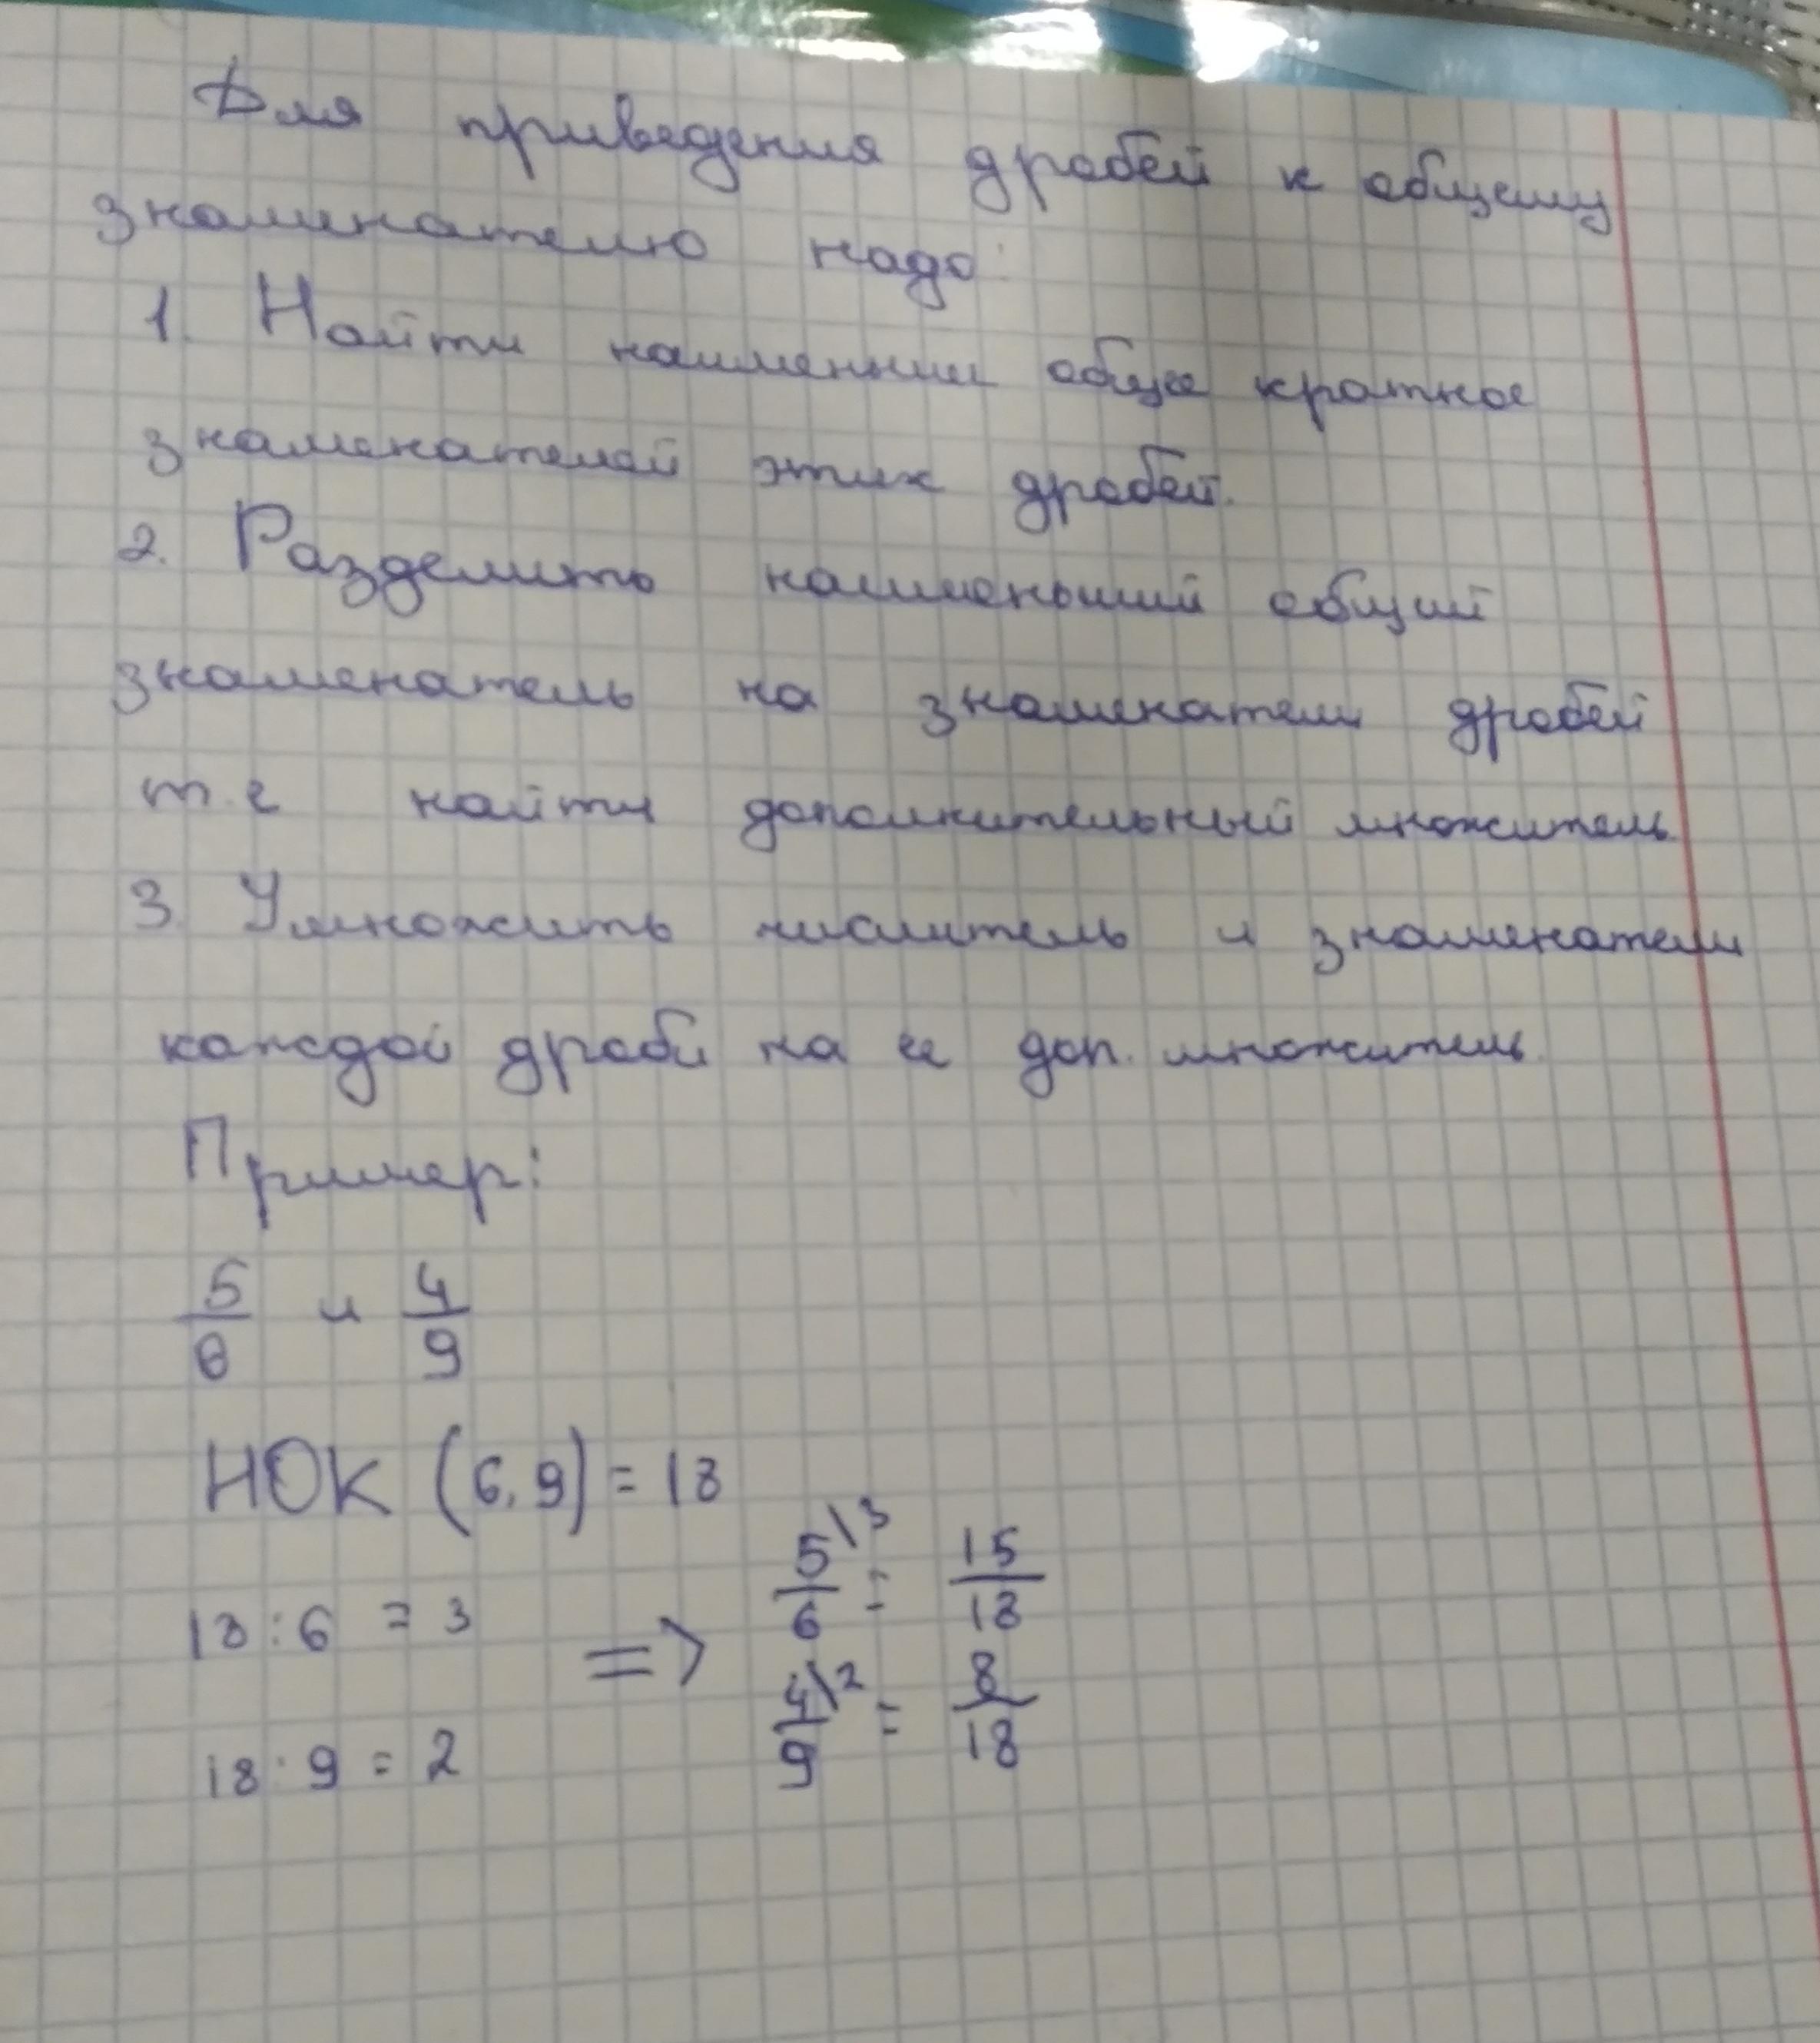 Для приведения дробей к общему
знаменателю надо:
1. Найти наименьшее общее кратное
знаменателей этих дробей.
2. Разделить наименьший общий
знаменатель на знаменатели дробей
т.е найти дополнительный множитель
3. Умножить числитель и знаменатели
каждой дроби на ее доп. множитель.
Пример:
5/6 и 4/9
НОК (6,9) = 18
18 : 6 = 3 => 5\3/6 = 15/18
18 : 9 = 2 4\2/9 = 8/18